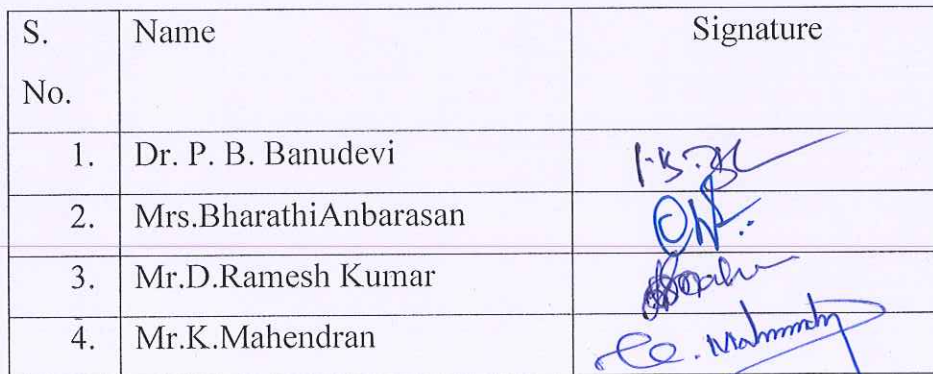 S.
No.
Name
Signature
1. Dr. P. B. Banudevi
2. Mrs.BharathiAnbarasan
3. Mr.D.Ramesh Kumar
4. Mr.K.Mahendran